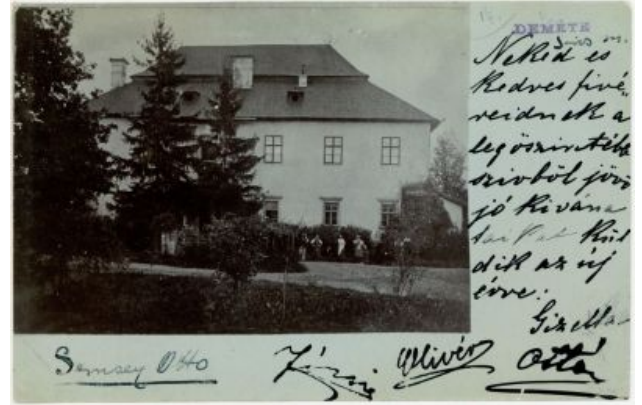 DEMÉTE
Sáros m.
Neked és
kedves fivé„
reidnek a
legőszintébb
szivből jövő
jó kivána
tait küld
dik az új
évre:
Gizella
Semsey Otto
Józsi
Olivér
Ottó